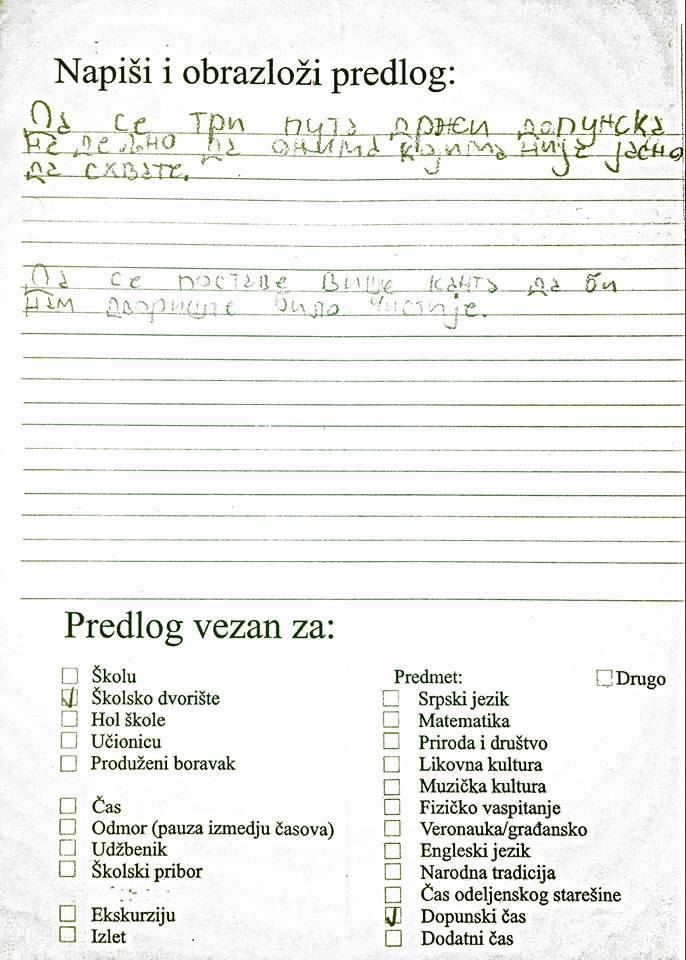 Napiši i obrazloži predlog:
Да се три пута држи допунска
недељно да онима којима није јасно
да схвате.
Да се поставе више канта да би
нам двориште било чистије.
Predlog vezan za:
Školu
Školsko dvorište
Hol škole
Učionicu
Produženi boravak
Čas
Odmor (pauza izmedju časova)
Udžbenik
Školski pribor
Ekskurziju
Izlet
Predmet:
Srpski jezik
Matematika
Priroda i društvo
Likovna kultura
Muzička kultura
Fizičko vaspitanje
Veronauka/građansko
Engleski jezik
Narodna tradicija
Čas odeljenskog starešine
Dopunski čas
Dodatni čas
Drugo